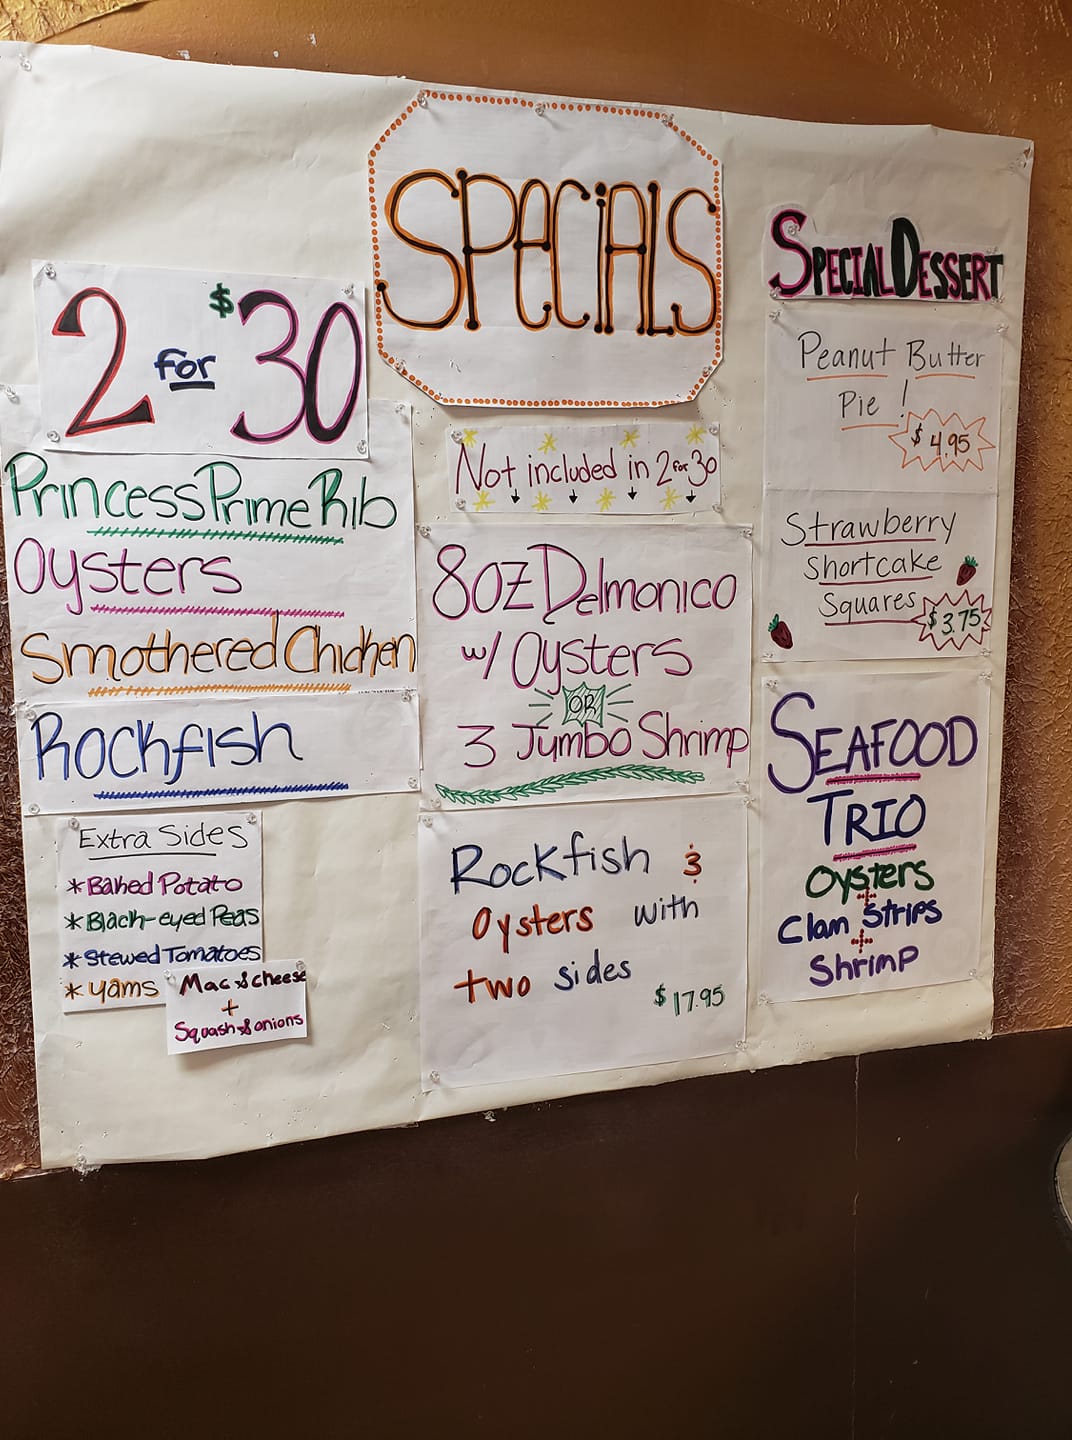 SPECIALS
2 for $30
Princess Prime Rib
Oysters
Smothered Chicken
Rockfish
Extra Sides
* Baked Potato
* Black-eyed Peas
* Stewed Tomatoes
* Yams
Mac & cheese
+
Squash & onions
Not included in 2 for 30
8oz Delmonico
w/ Oysters
OR
3 Jumbo Shrimp
Rockfish &
Oysters with
two sides
$17.95
SPECIAL DESSERT
Peanut Butter
Pie!
$4.95
Strawberry
Shortcake
Squares
$3.75
SEAFOOD
TRIO
Oysters
+
Clam Strips
+
Shrimp